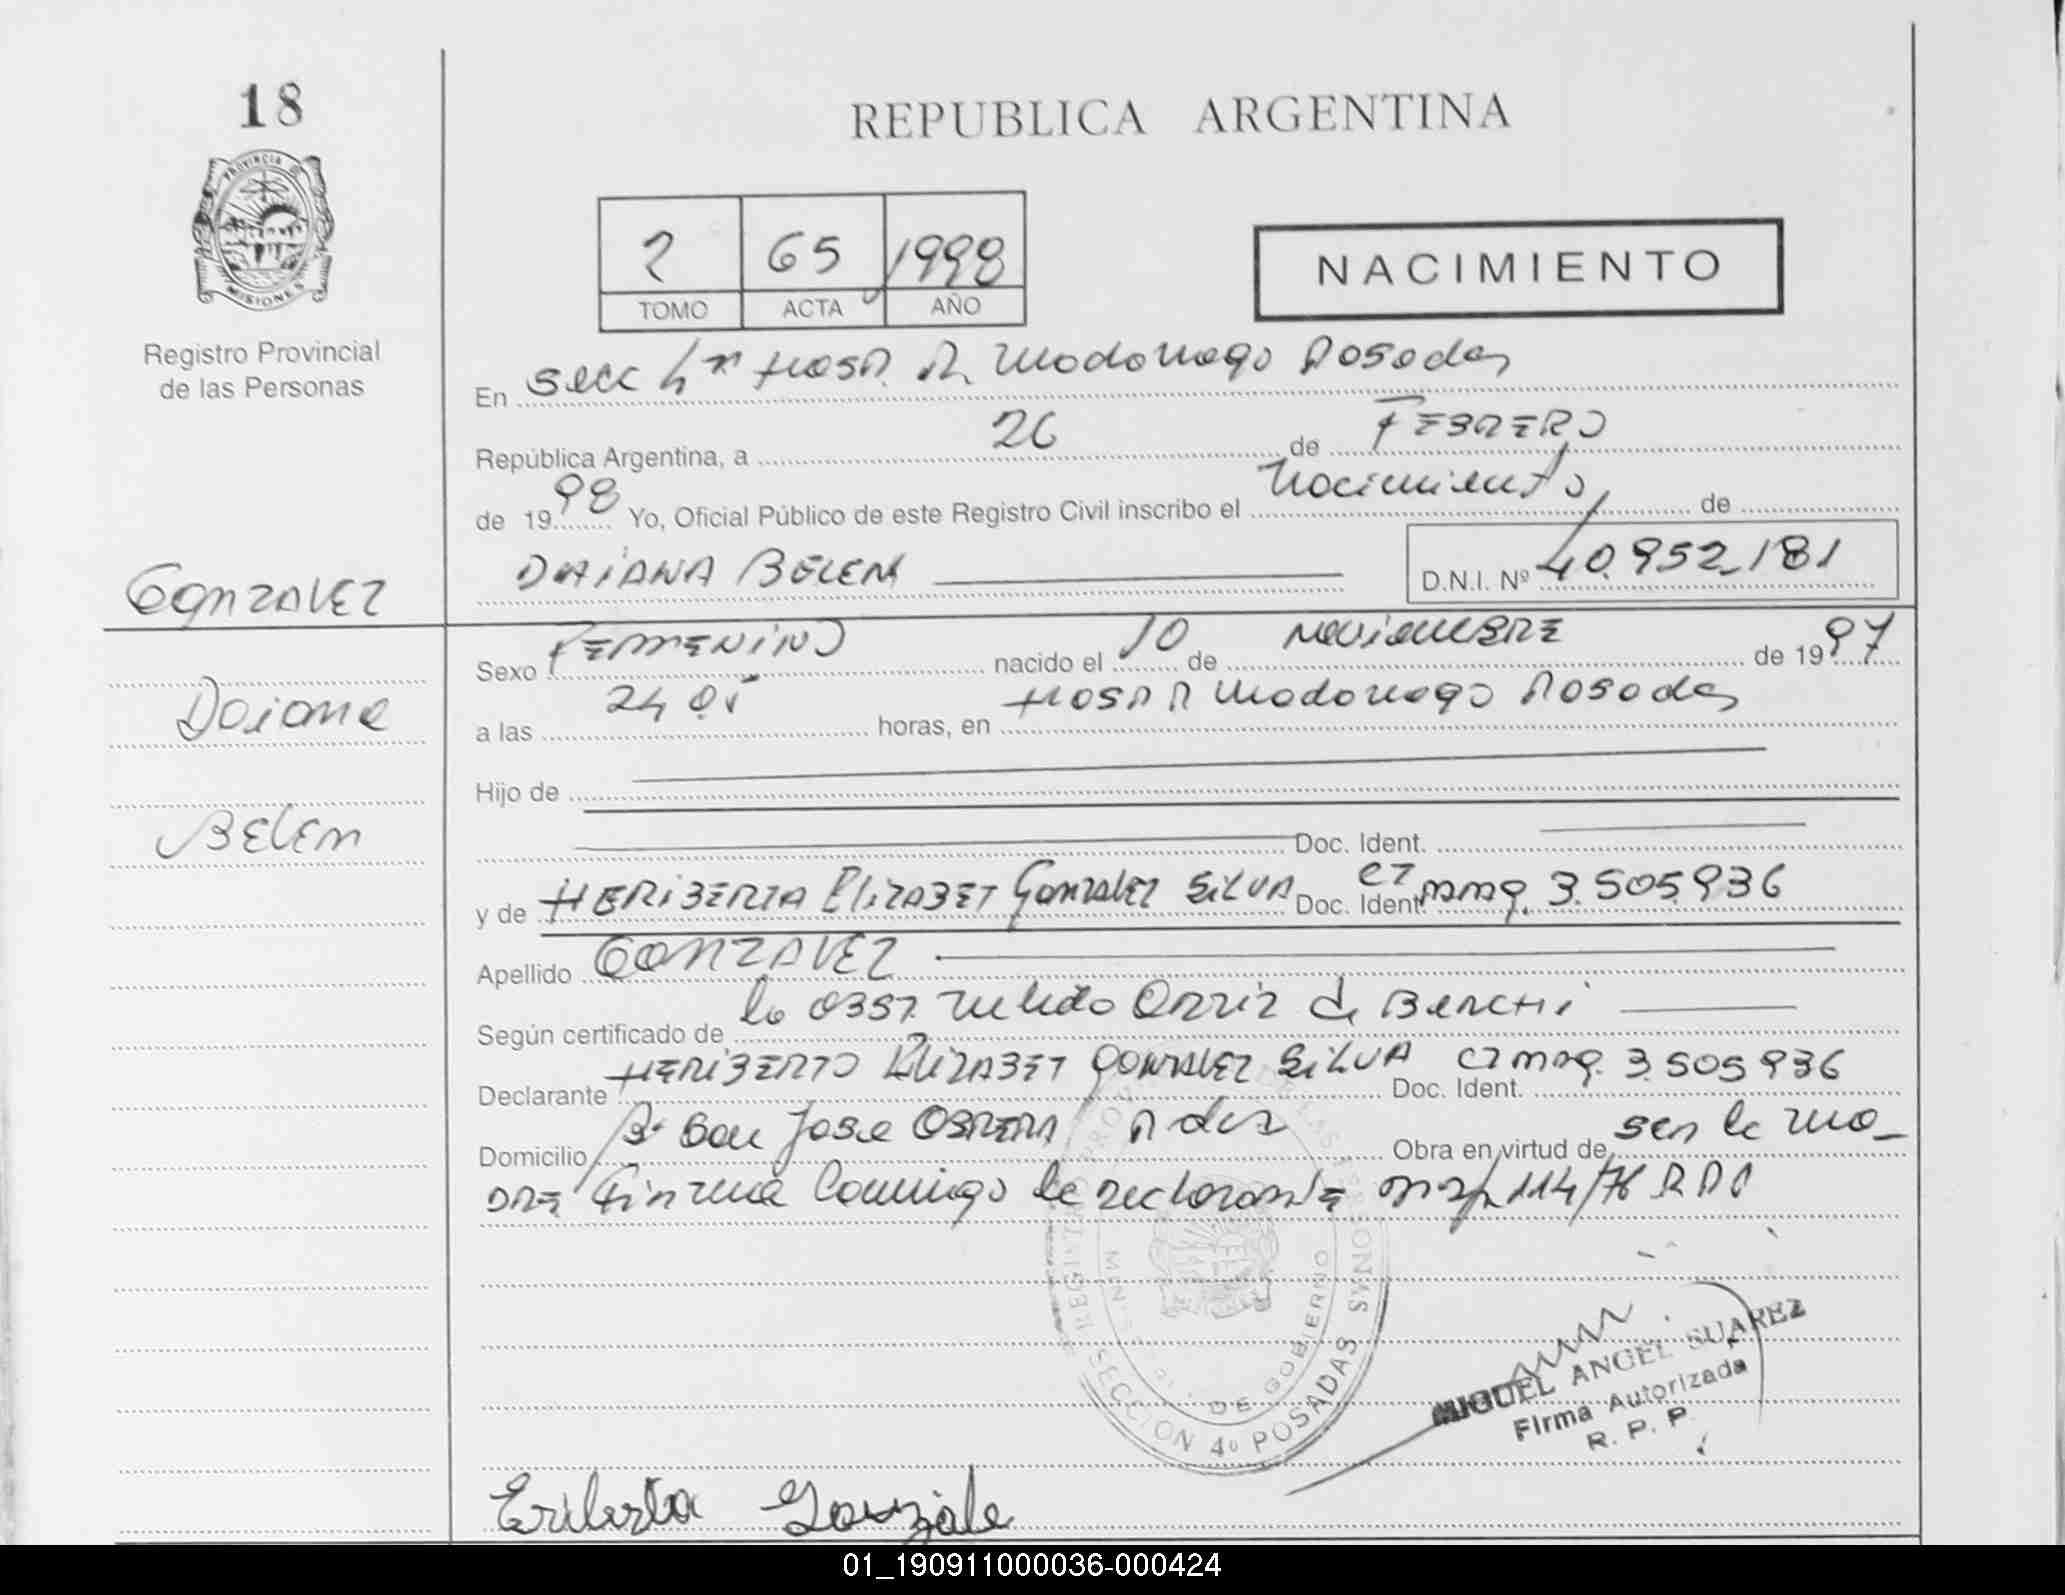 18
REPUBLICA ARGENTINA
PROVINCIA DE
MISIONES
Registro Provincial
de las Personas
2 65 1998
TOMO ACTA AÑO
NACIMIENTO
En Secc 4ta Hosp. R. Madariaga Posadas
República Argentina, a 26 de FEBRERO
de 1998 Yo, Oficial Público de este Registro Civil inscribo el Nacimiento de
DAIANA BELEN D.N.I. Nº 40.952.181
GONZALEZ
Daiana
BELEN
Sexo FEMENINO nacido el 10 de NOVIEMBRE de 1997
a las 24 05 horas, en HOSP R Madariaga Posadas
Hijo de
Doc. Ident.
y de HERIBERTA ELIZABET GONZALEZ SILVA Doc. Ident. CI mnq. 3.505.936
Apellido GONZALEZ
Según certificado de la OBST. Ortiz de BENCHI
Declarante HERIBERTA ELIZABET GONZALEZ SILVA Doc. Ident. CI mnq. 3.505936
Domicilio Bº San Jose OBRERO Pdas Obra en virtud de ser la ma-
DRE Firma Conmigo la declarante 114/76 RPP
REGISTRO PROV. DE LAS PERSONAS
SECCION 4º POSADAS
DE GOBIERNO
MIGUEL ANGEL SUAREZ
Firma Autorizada
R. P. P.
Eriberta Gonzale
01_190911000036-000424